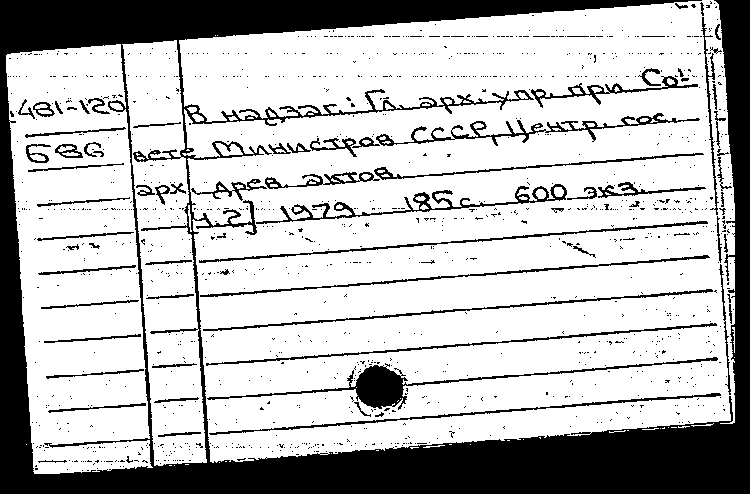 481-120 В надзаг.: Гл. арх. упр. при Со-
686 вете Министров СССР, Центр. гос.
арх. древ. актов.
[ч.2] 1979. 185 с. 600 экз.